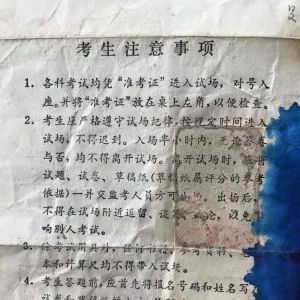 考生注意事项
1. 各科考试均凭“准考证”进入试场，对号入
座。并将“准考证”放在桌上左角，以便检查。
2. 考生应严格遵守试场纪律。按规定时间进入
试场，不得迟到。入场半小时内，无论答卷
与否，均不得离开试场。离开试场时，应将
试题、试卷、草稿纸（草稿纸属评分的参考
依据）一并交监考人员方可
出场后，
不得在试场附近逗留、谈论，以免影
响别人考试。
3.
本和计算尺均不得带入试场。
4. 考生答题前，应首先将报名号码和姓名写